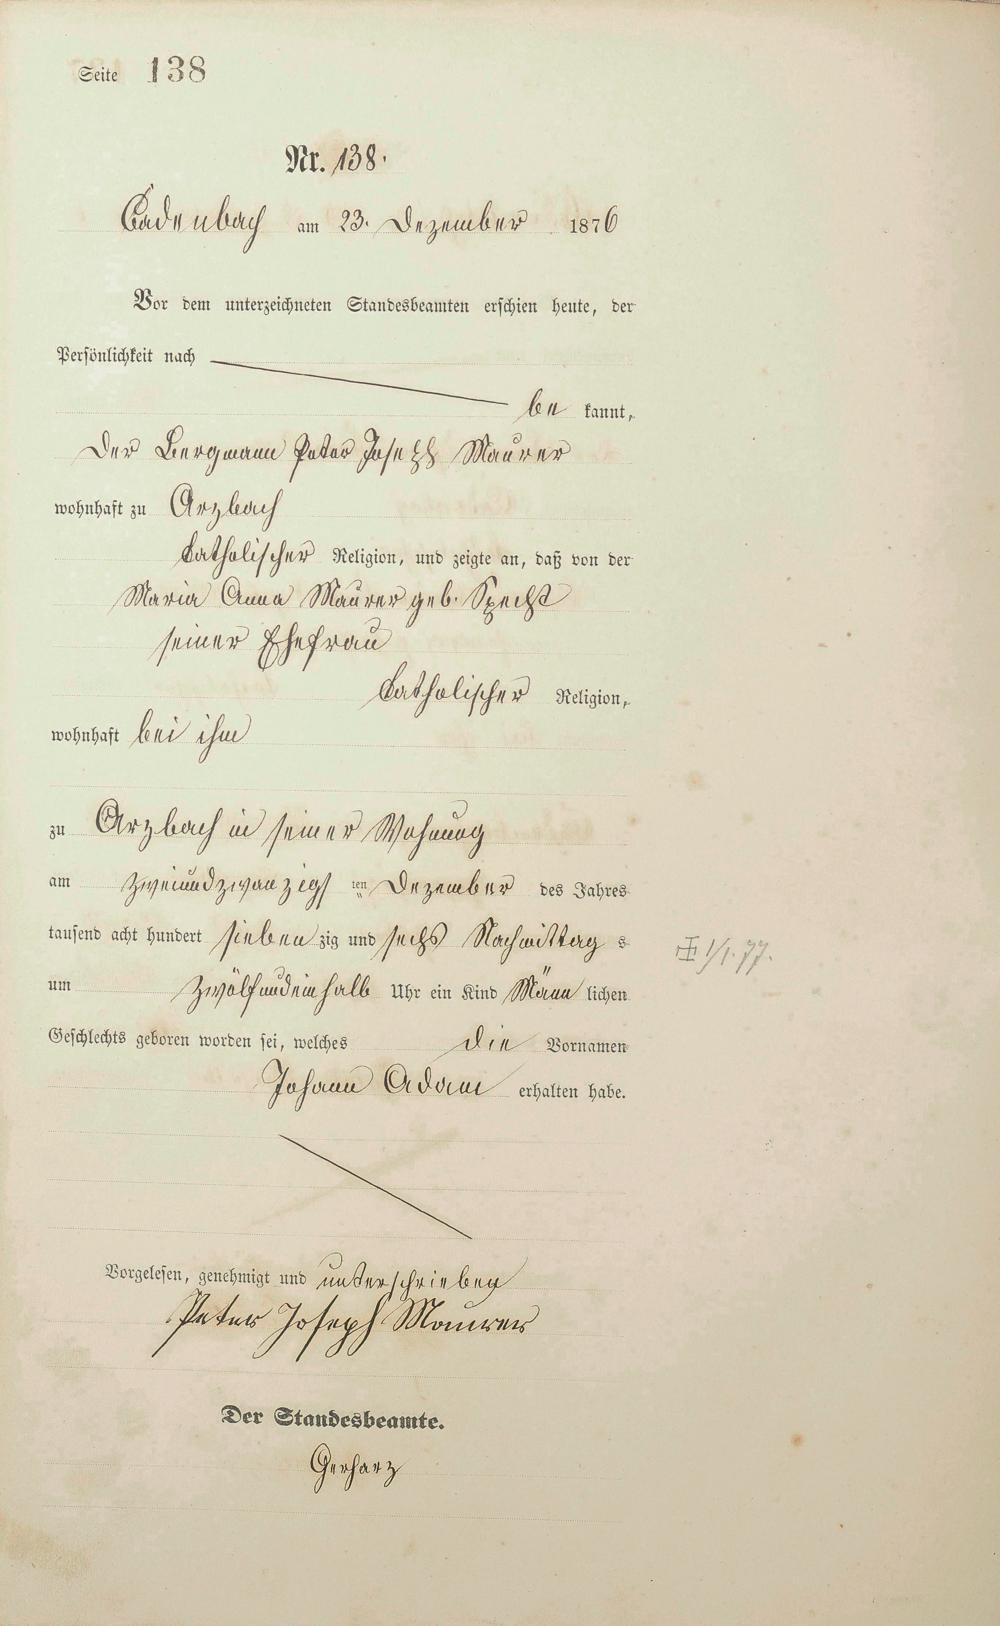 Seite 138
Nr. 138.
Cadenbach am 23. Dezember 1876
Vor dem unterzeichneten Standesbeamten erschien heute, der
Persönlichkeit nach
be kannt,
der Bergmann Peter Joseph Maurer
wohnhaft zu Arzbach
katholischer Religion, und zeigte an, daß von der
Maria Anna Maurer geb. Specht
seiner Ehefrau
katholischer Religion,
wohnhaft bei ihm
zu Arzbach in seiner Wohnung
am zweiundzwanzigs ten Dezember des Jahres
tausend acht hundert sieben zig und sechs Nachmittag s
um zwölfundeinhalb Uhr ein Kind Männ lichen
Geschlechts geboren worden sei, welches die Vornamen
Johann Adam erhalten habe.
1/1.77.
Vorgelesen, genehmigt und unterschrieben
Peter Joseph Maurer
Der Standesbeamte.
Gerharz